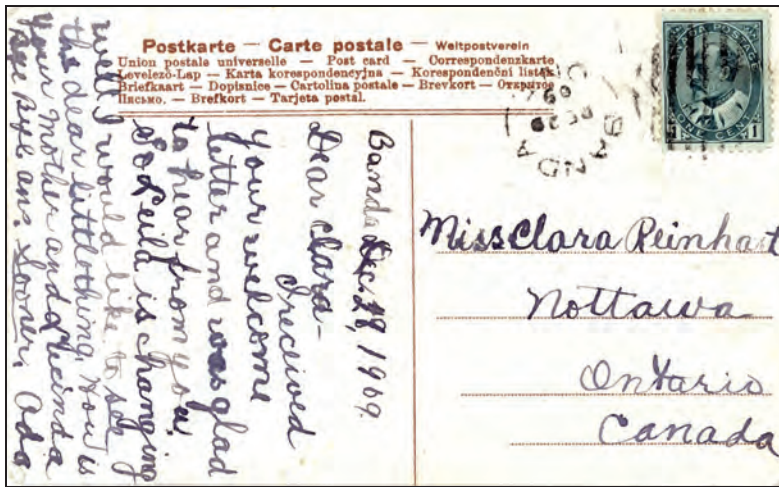 Postkarte — Carte postale — Weltpostverein
Union postale universelle — Post card — Correspondenzkarte
Levelező-Lap — Karta korespondencyjna — Korespondenční lístek
Briefkaart — Dopisnice — Cartolina postale — Brevkort — Открытое
Письмо. — Brefkort — Tarjeta postal.
CANADA POSTAGE
1 ONE CENT 1
BANDA
DE 29
09
Banda Dec. 28, 1909.
Dear Clara-
I received
your welcome
letter and was glad
to hear from you.
So Leila is changing
well I would like to see
the dear little thing. How is
your mother and Lucinda
Bye Bye ans. Sooner. Ada
Miss Clara Reinhart
Nottawa
Ontario
Canada